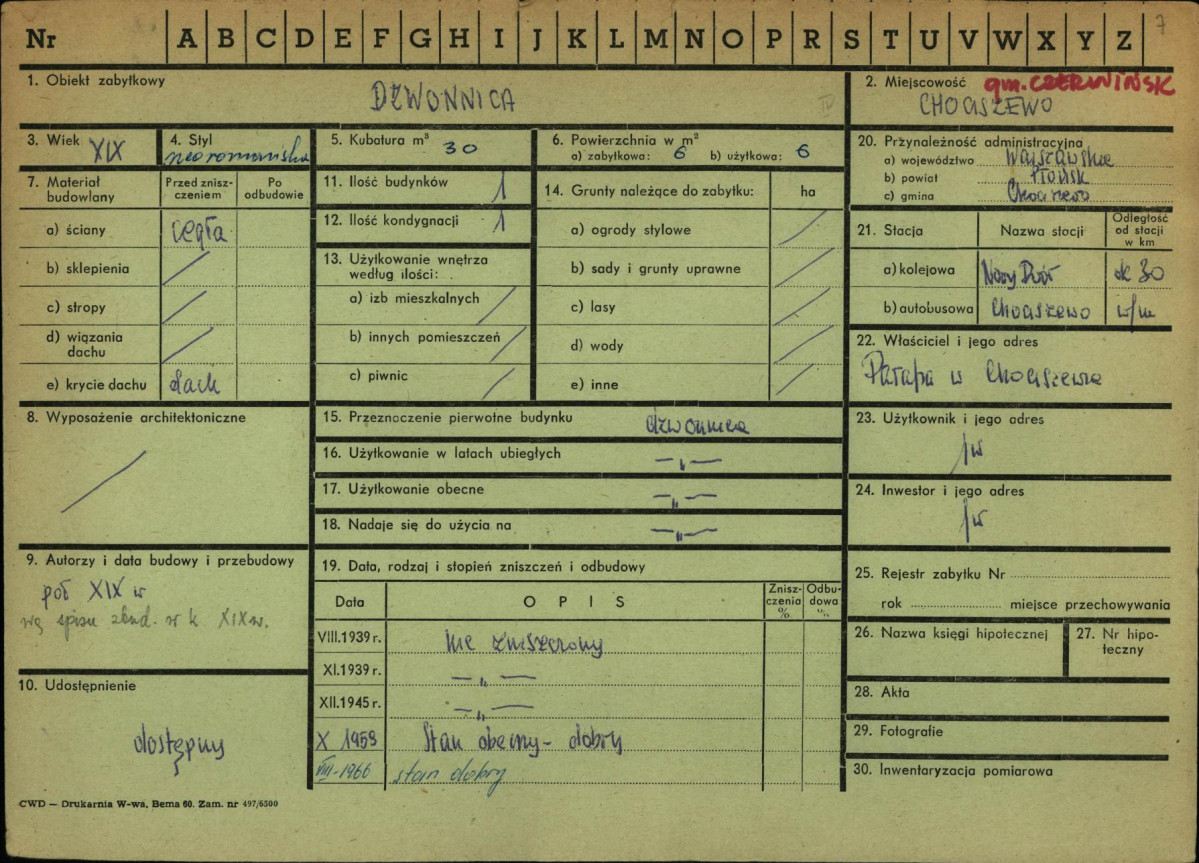 Nr A B C D E F G H I J K L M N O P R S T U V W X Y Z 7
1. Obiekt zabytkowy
DZWONNICA
IV
2. Miejscowość gm. CZERWIŃSK
CHOCISZEWO
3. Wiek XIX
4. Styl
neoromańska
5. Kubatura m³
30
6. Powierzchnia w m²
a) zabytkowa: 6 b) użytkowa: 6
7. Materiał budowlany
Przed zniszczeniem
Po odbudowie
a) ściany cegła
b) sklepienia /
c) stropy /
d) wiązania dachu /
e) krycie dachu dach
8. Wyposażenie architektoniczne
/
9. Autorzy i data budowy i przebudowy
poł XIX w
wg spisu zbud. w k XIX w.
10. Udostępnienie
dostępny
11. Ilość budynków 1
12. Ilość kondygnacji 1
13. Użytkowanie wnętrza według ilości:
a) izb mieszkalnych /
b) innych pomieszczeń /
c) piwnic /
14. Grunty należące do zabytku: ha
a) ogrody stylowe /
b) sady i grunty uprawne /
c) lasy /
d) wody /
e) inne /
15. Przeznaczenie pierwotne budynku dzwonnica
16. Użytkowanie w latach ubiegłych —„—
17. Użytkowanie obecne —„—
18. Nadaje się do użycia na —„—
19. Data, rodzaj i stopień zniszczeń i odbudowy
Data
OPIS
Zniszczenia %
Odbudowa %
VIII.1939 r. nie zniszczony
XI.1939 r. —„—
XII.1945 r. —„—
X 1959 Stan obecny – dobry
VIII-1966 stan dobry
20. Przynależność administracyjna
a) województwo Warszawskie
b) powiat Płońsk
c) gmina Chociszewo
21. Stacja
Nazwa stacji
Odległość od stacji w km
a) kolejowa Nowy Dwór ok 30
b) autobusowa Chociszewo w/m
22. Właściciel i jego adres
Parafia w Chociszewie
23. Użytkownik i jego adres
jw
24. Inwestor i jego adres
jw
25. Rejestr zabytku Nr
rok miejsce przechowywania
26. Nazwa księgi hipotecznej
27. Nr hipoteczny
28. Akta
29. Fotografie
30. Inwentaryzacja pomiarowa
CWD — Drukarnia W-wa, Bema 60. Zam. nr 497/6500